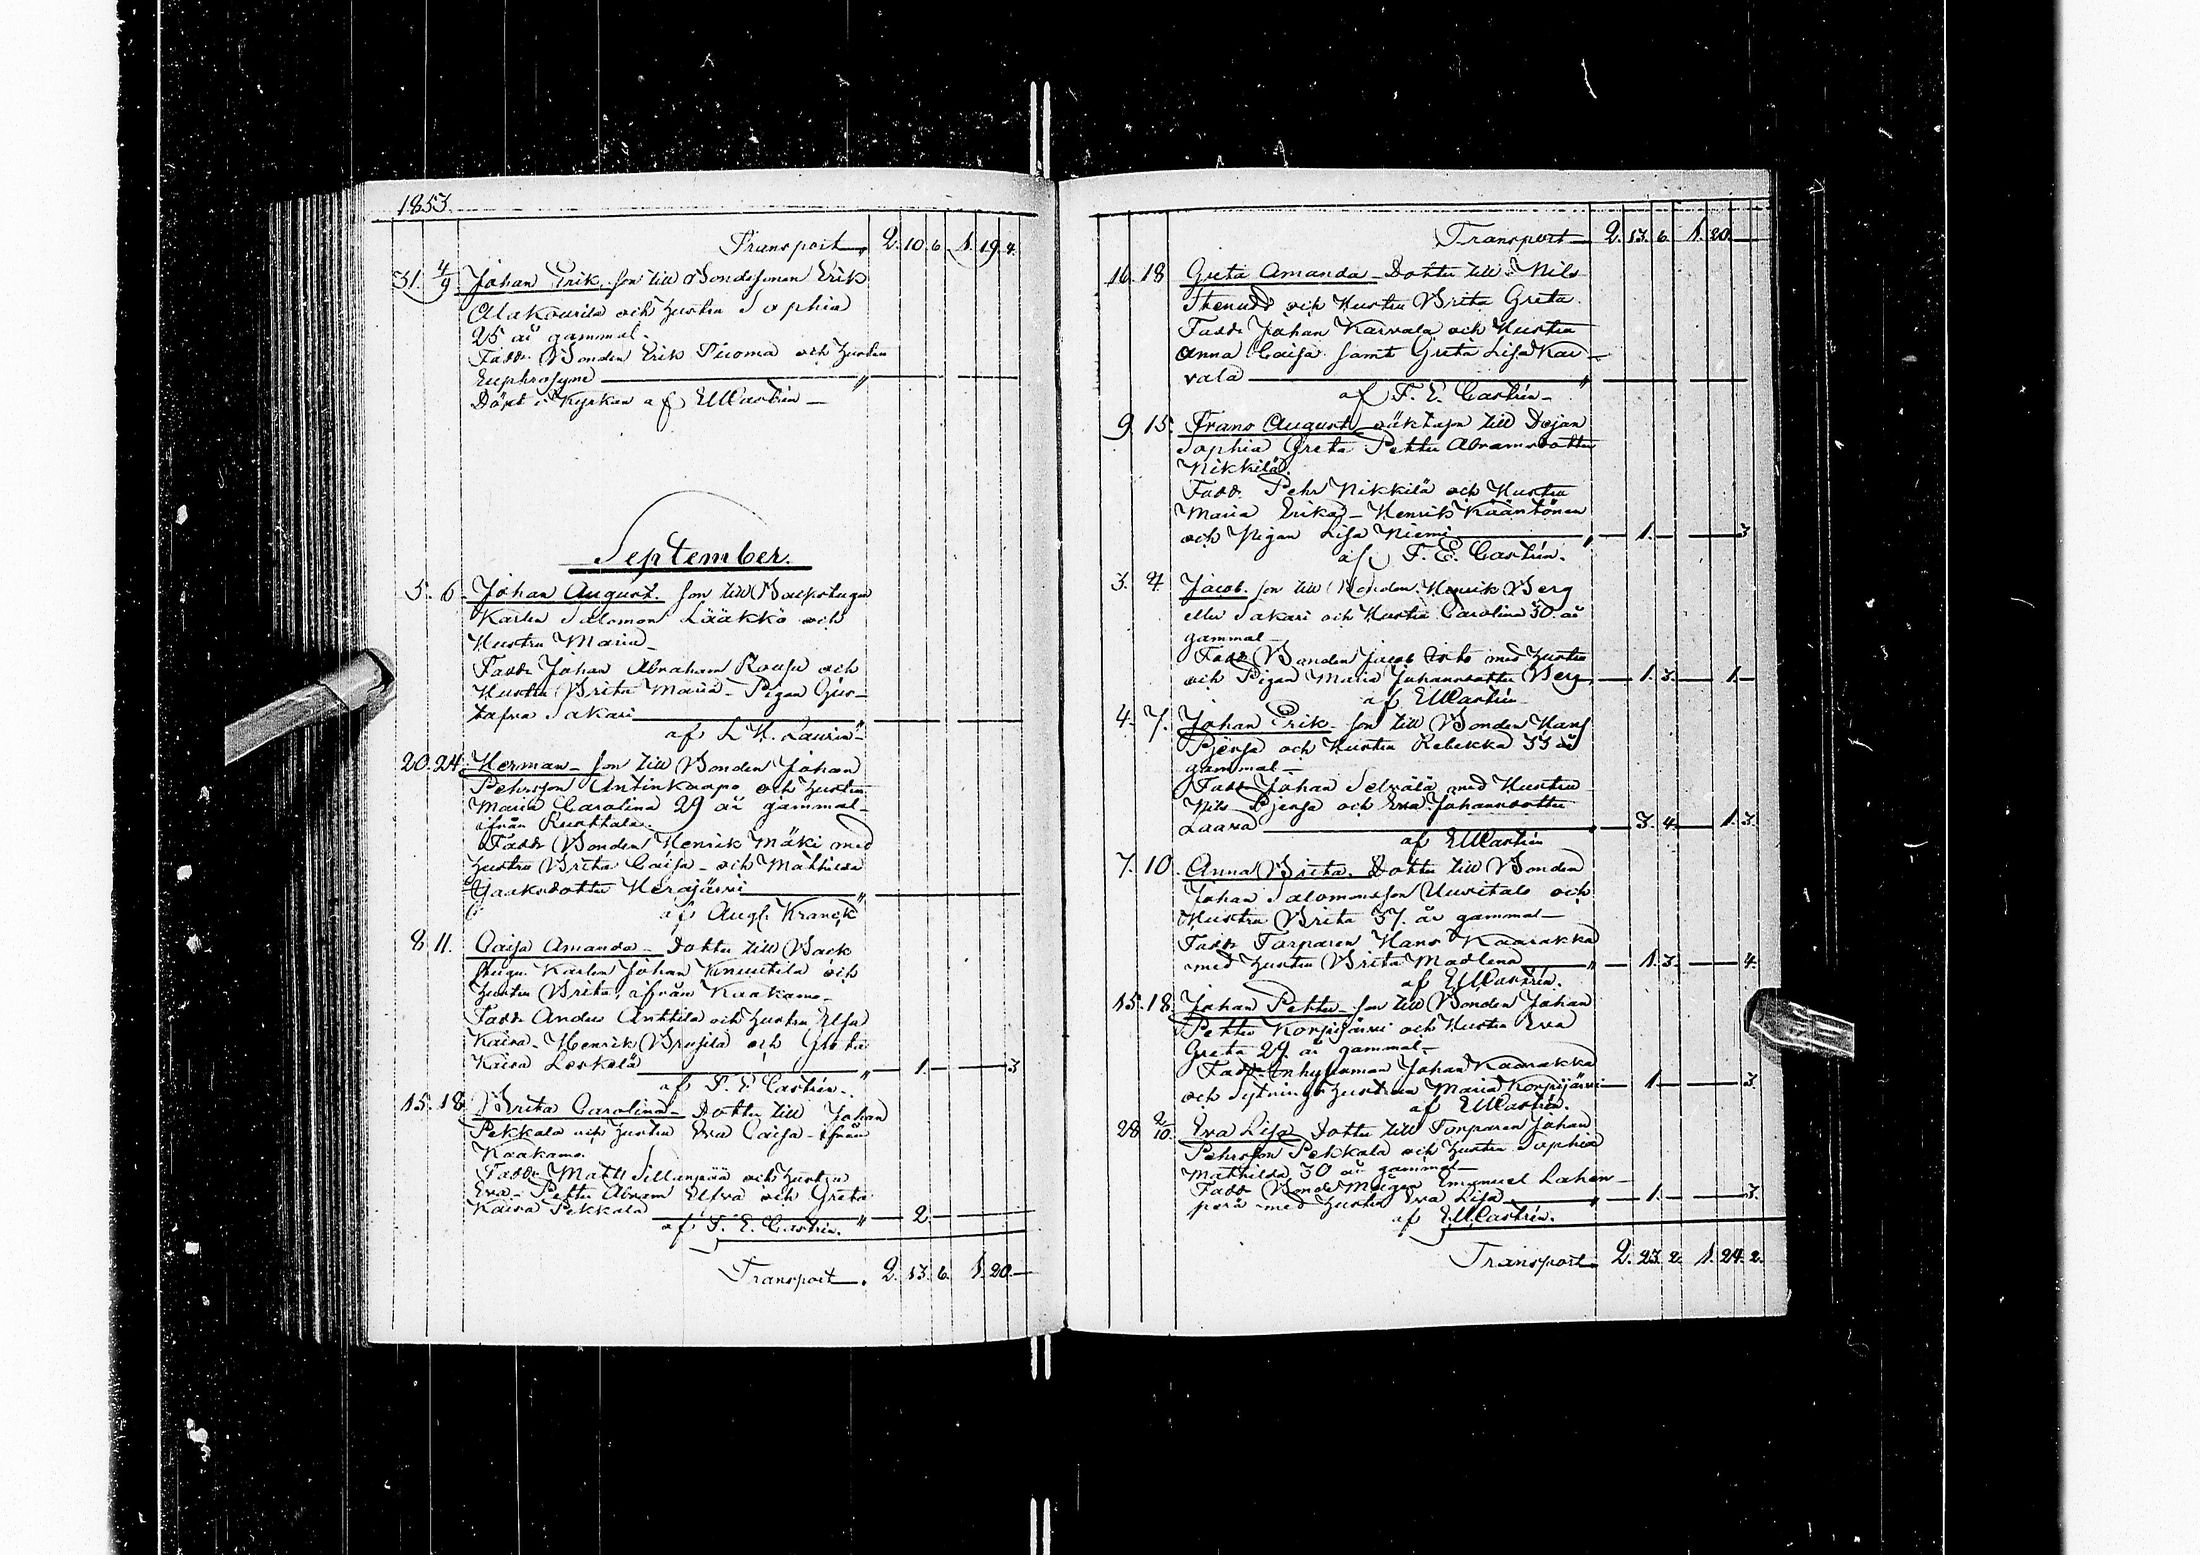 1853.
Transport 2. 10. 6. 1. 19. 4.
31. 4/9 Johan Erik, son till Bondesonen Erik
Alakourila och hustru Sophia
25 år gammal.
Fadd. Bonden Erik Tuoma och hustru
Euphrosyne
Döpt i Kyrkan af EMCastrén
September.
5. 6. Johan August. son till Backstugu
Karlen Salomon Lääkkö och
Hustru Maria
Fadd. Johan Abraham Rousu och
Hustru Brita Maria - Pigan Gus-
tafva Sakari
af L H. Laurin
20. 24. Herman - son till Bonden Johan
Pehrsson Antinkaapo och hustru
Maria Carolina 29 år gammal
ifrån Ruottala.
Fadd. Bonden Henrik Mäki med
hustru Brita Caisa - och Mathilda
Isaksdotter Herajärvi
af Aug. Kranck
8. 11. Caisa Amanda - Dotter till Back
stugu Karlen Johan Knuutila och
hustru Brita, ifrån Kaakamo
Fadd. Anders Anttila och hustru Elsa
Kaisa - Henrik Brusila och Greta
Kaisa Leskelä 1. 3
af F. E. Castrén.
15. 18. Brita Carolina - Dotter till Johan
Pekkala och hustru Eva Caisa - ifrån
Kaakamo.
Fadd. Matts Sillanpää och hustru
Eva - Petter Abram och Greta
Kaisa Pekkala 2.
af F. E. Castrén.
Transport. 2. 13. 6. 1. 20.
Transport 2. 13. 6. 1. 20
16. 18 Greta Amanda - Dotter till Nils
Stenudd och Hustru Brita Greta
Fadd. Johan Karvala och Hustru
Anna Caisa samt Greta Lisa Kar-
vala
af F. E. Castrén
9. 15. Frans August oäkta son till Dejan
Sophia Greta Petter Abramsdotter
Nikkilä.
Fadd. Pehr Nikkilä och Hustru
Maria Erika - Henrik Kääntönen
och Pigan Lisa Niemi 1. 3
af F. E. Castrén.
3. 4. Jacob. son till Bonden Henrik Berg
eller Sakari och Hustru Carolina 30 år
gammal
Fadd. Bonden Jacob med hustru
och Pigan Maria Johansdotter Berg 1. 3. 1.
af EMCastrén
4. 7. Johan Erik - son till Bonden Hans
Pjensa och Hustru Rebekka 33 år
gammal
Fadd. Johan med Hustru
Nils Pjensa och Eva Johansdotter
Laava 3. 4. 1. 3.
af EMCastrén
7. 10. Anna Brita. Dotter till Bonden
Johan Salomonsson Uusitalo och
Hustru Brita 37. år gammal
Fadd. Torparen Hans Kaarakka
med hustru Brita Madlena 1. 3. 4.
af EMCastrén.
15. 18. Johan Petter - son till Bonden Johan
Petter Korpijärvi och Hustru Eva
Greta 29. år gammal
Fadd. Inhysman Johan Kaarakka
och Sytnings hustrun Maria Korpijärvi 1. 3.
af EMCastrén.
28 2/10. Eva Lisa Dotter till Torparen Johan
Pehrsson Pekkala och hustru Sophia
Mathilda 30 år gammal
Fadd. Bonde Emanuel Lahen-
perä med hustru Eva Lisa 1. 3.
af EMCastrén.
Transport. 2. 23. 2. 1. 24. 2.